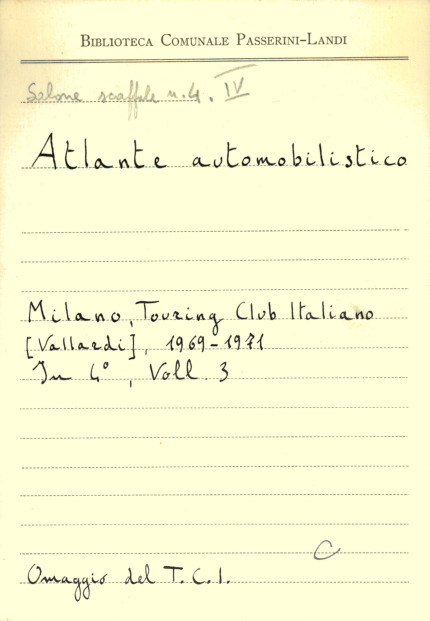 BIBLIOTECA COMUNALE PASSERINI-LANDI
Salone scaffale n. 4. IV
Atlante automobilistico
Milano, Touring Club Italiano
[Vallardi], 1969-1971
In 4°, Voll. 3
C
Omaggio del T.C.I.